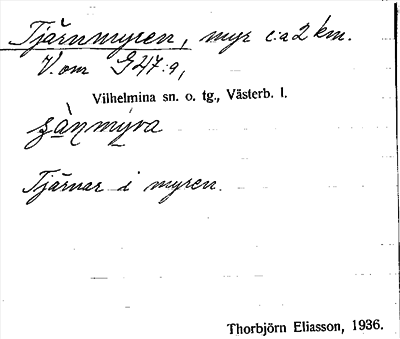 Tjärnmyren, myr c:a 2 km.
V. om G 47:a,
Vilhelmina sn. o. tg., Västerb. l.
Tjärnar i myren.
Thorbjörn Eliasson, 1936.